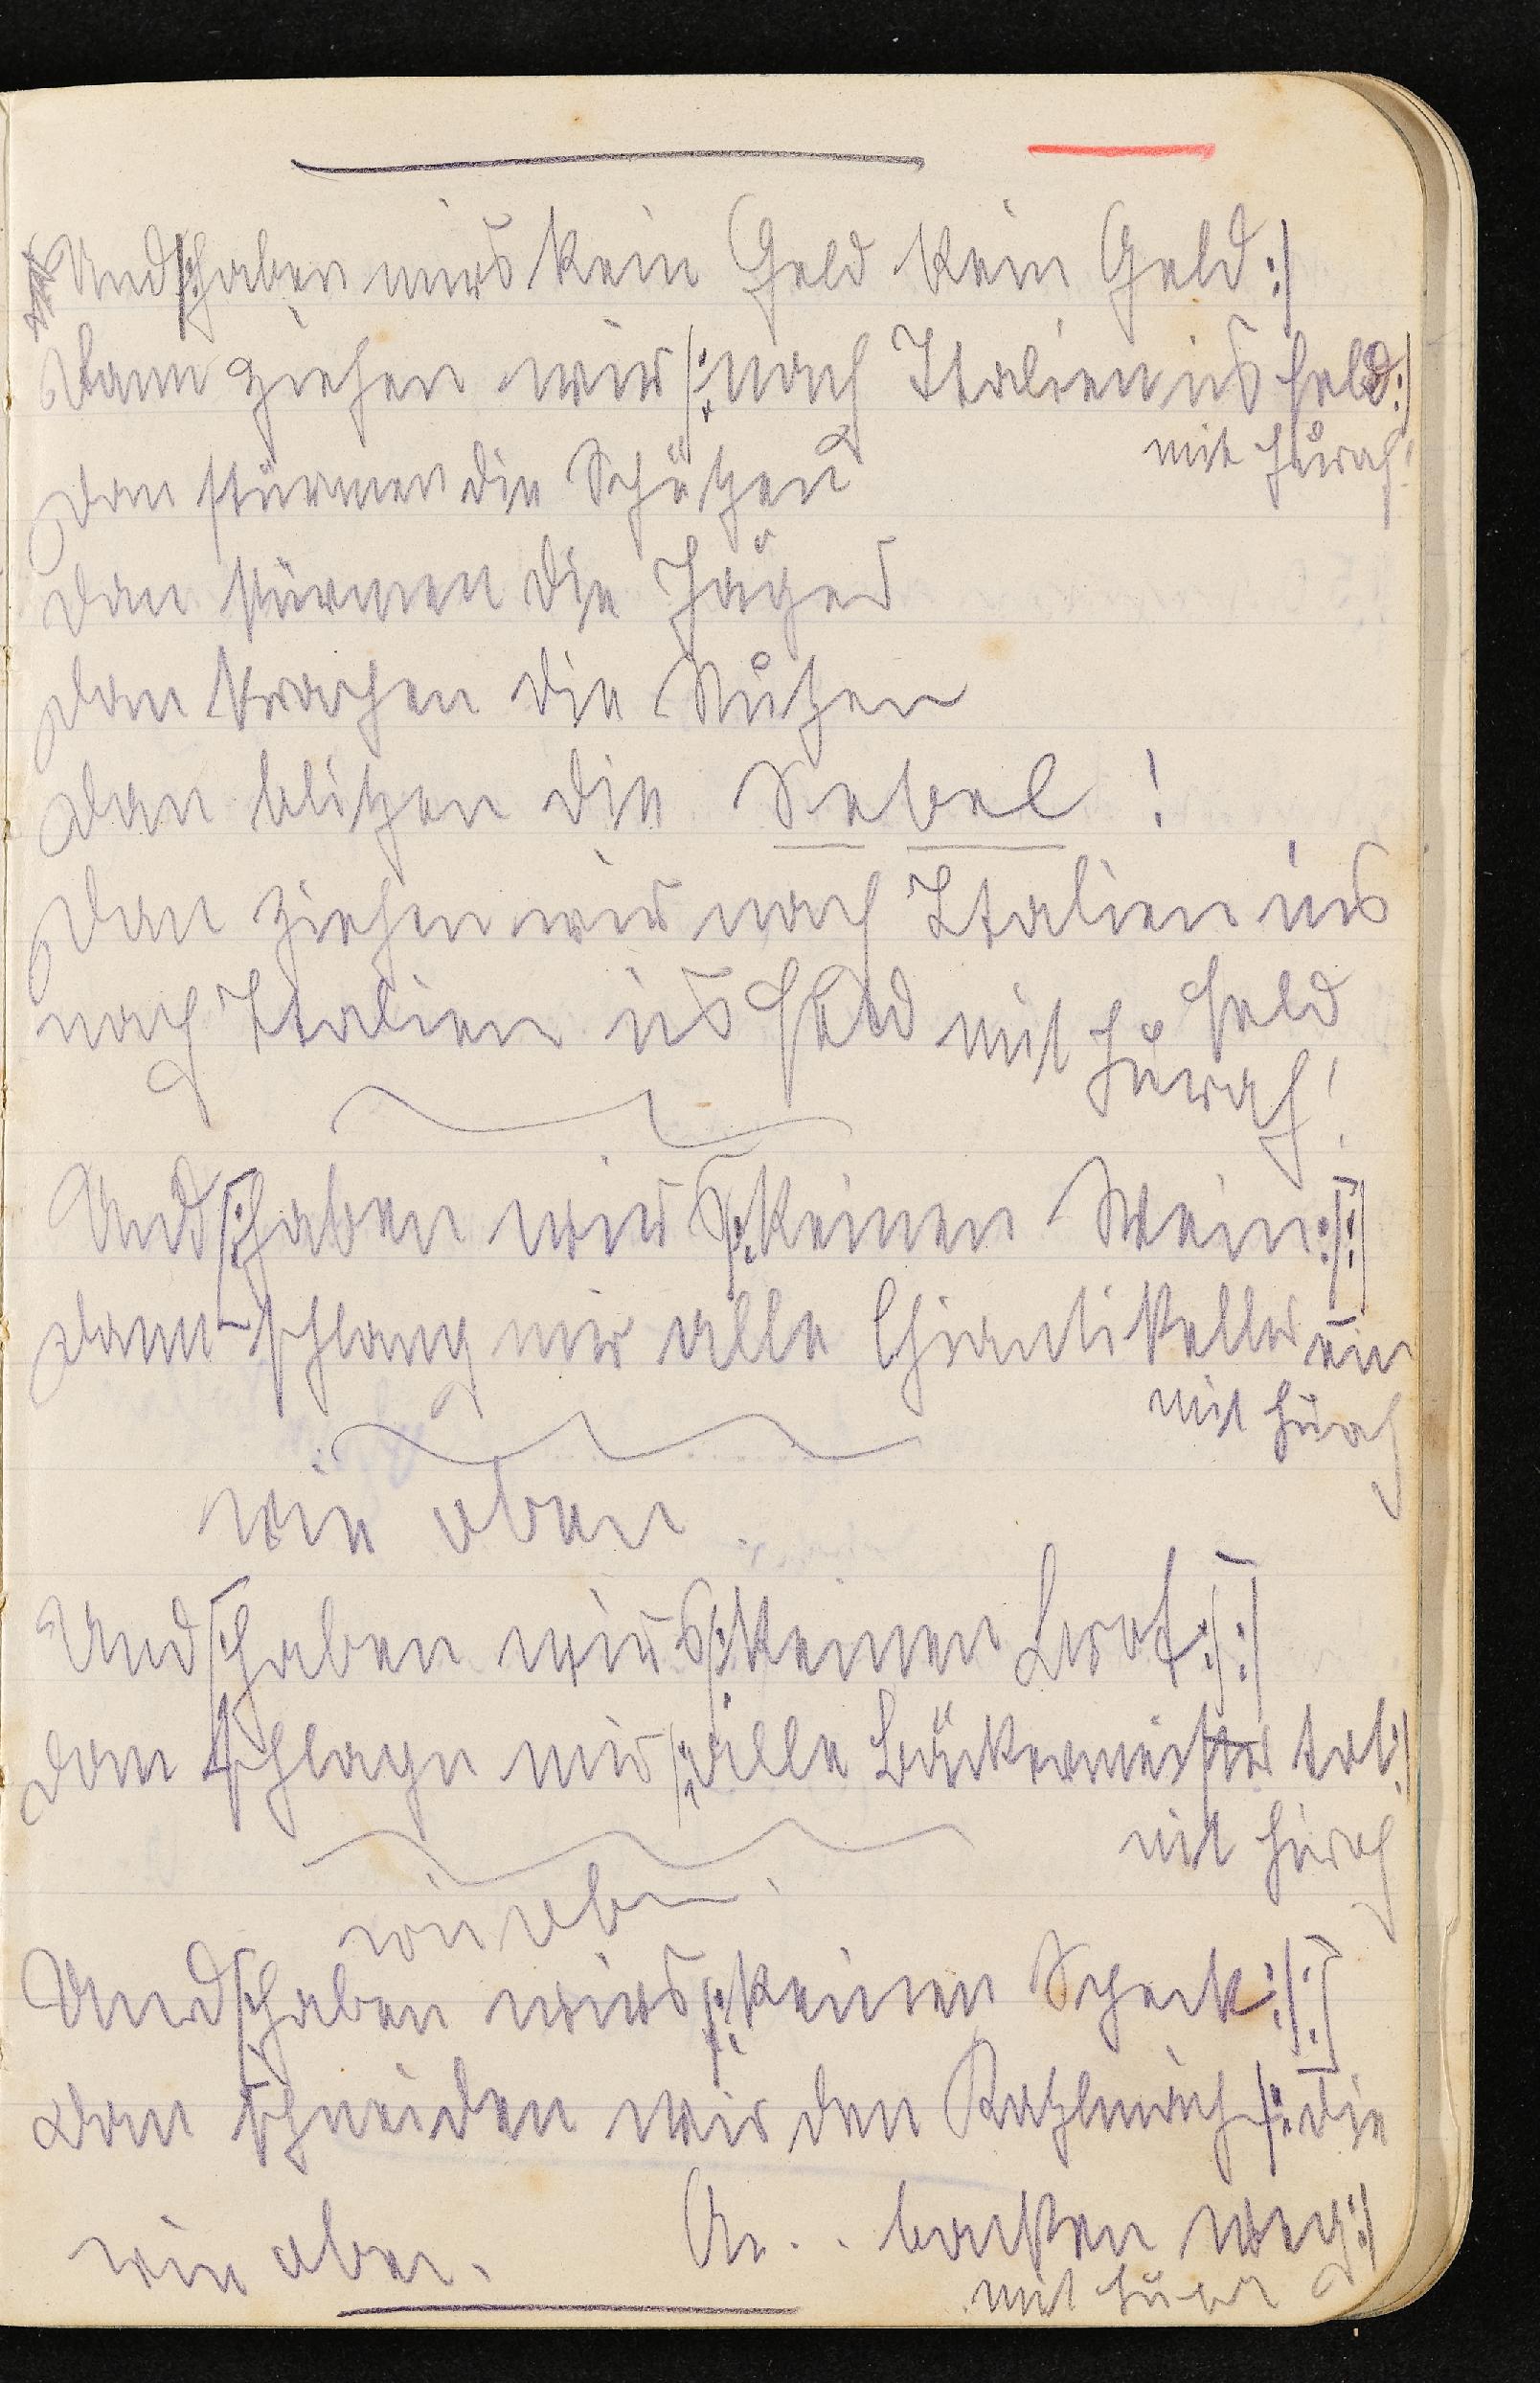 Und |: haben wirs kein Geld kein Geld :|
Dann ziehen wir |: nach Italien ins Feld :|
mit Hurah!
Dan stürmen die Schützen
Dan stürmen die Jäger
Dan krachen die Stutzen
Dan blitzen die Sebel!
Dan ziehen wir nach Italien ins
Feld
nach Italien ins Feld mit Hurah!
Und |: haben wirs |: keinen Wein :| :|
Dann schlang mir alle Chianti Keller ein
mit Hurah
wie oben
Und |: haben wirs |: keinen Brot :| :|
Dan schlagn mir |: alle Bäckermeister tot :|
mit Hurah
wie oben
Und |: haben wirs |: keinen Speck :| :|
Dan schneiden wir den Katzlmach |: die
A... backen weg :|
wie oben.
mit Hura